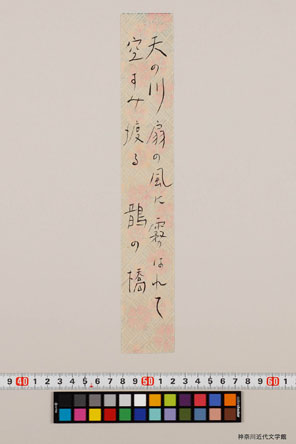 天の川扇の風に霧はれて
空すみ渡る鵲の橋
9 40 1 2 3 4 5 6 7 8 9 50 1 2 3 4 5 6 7 8 9 60 1
神奈川近代文学館